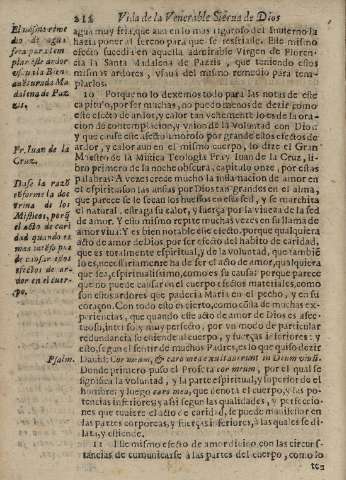 212 Vida de la Venerable Sierva de Dios
El mismo reme
dio de agua
fera para tem
plar este ardor
Bien
auenturada Ma
dalena de Paz
zis.
agua muy fria, que aun en lo mas riguroso del Inuierno la
hazia poner al sereno para que se resfriasse. Este mismo
efecto sucedió en aquella admirable Virgen de Floren-
cia la Santa Madalena de Pazzis, que teniendo estos
mismos ardores, vsaua del mismo remedio para tem-
plarlos.
10 Porque no lo dexemos todo para las notas de este
capitulo, por ser muchas, no puedo menos de dezir como
este efecto de ardor, y calor tan vehemente lo es de la ora-
cion de contemplacion, y vnion de la Voluntad con Dios:
y que cause este acto amoroso por grande ellos efectos de
Fr. Iuan de la
Cruz.
ardor, y calor aun en el mismo cuerpo, lo dize el Gran
Maestro de la Mistica Teologia Fray Iuan de la Cruz, li-
bro primero de la noche obscura, capitulo onze, por estas
palabras: A vezes crece mucho la inflamacion de amor en
Dase la razõ
cõforme la doc
trina de los
Misticos, porq̃
el acto de cari
dad quando es
mas intẽso pue
de causar estos
efectos de ar-
dor en el cuer-
po.
el espiritu son las ansias por Dios tan grandes en el alma,
que parece se le secan los huessos en esta sed, y se marchita
el natural, estraga su calor, y fuerça por la viueza de la sed
de amor. Y esto mismo repite muchas vezes en su llama de
amor viua: Y es bien notable este efecto, porque qualquiera
acto de amor de Dios por ser efecto del habito de caridad,
que es totalmente espiritual, y de la Voluntad, que tambiẽ
lo es, necessariamente ha de ser el acto de amor, qualquiera
que sea, espiritualissimo, como es su causa: porque parece
que no puede causar en el cuerpo efectos materiales, como
son estos ardores que padecia Maria en el pecho, y en su
coraçon. Con todo ello es cierto, como cõsta de muchas ex-
periencias, que quando este acto de amor de Dios es afec-
tuoso, intenso, y muy perfecto, por vn modo de particular
redundancia se estiende al cuerpo, y fuerças inferiores: y
esto, segun el sentir de muchos Padres, es lo que quiso dezir
Psalm.
Dauid: Cor meum, & caro mea exultauerunt in Deum viuũ.
Donde primero puso el Profeta cor meum, por el qual se
significa la Voluntad, y la parte espiritual, y superior de el
hombre: y luego caro mea, que denota el cuerpo, y las po-
tencias inferiores y assi segun las qualidades, y perfeccio-
nes que tuuiere el acto de caridad, se puede manifestar en
las partes corporeas, y fuerças inferiores, à las quales se di-
lata, y estiende.
11 Este mismo efecto de amor diuino con las circuns-
tancias de comunicarse à las partes del cuerpo, como lo